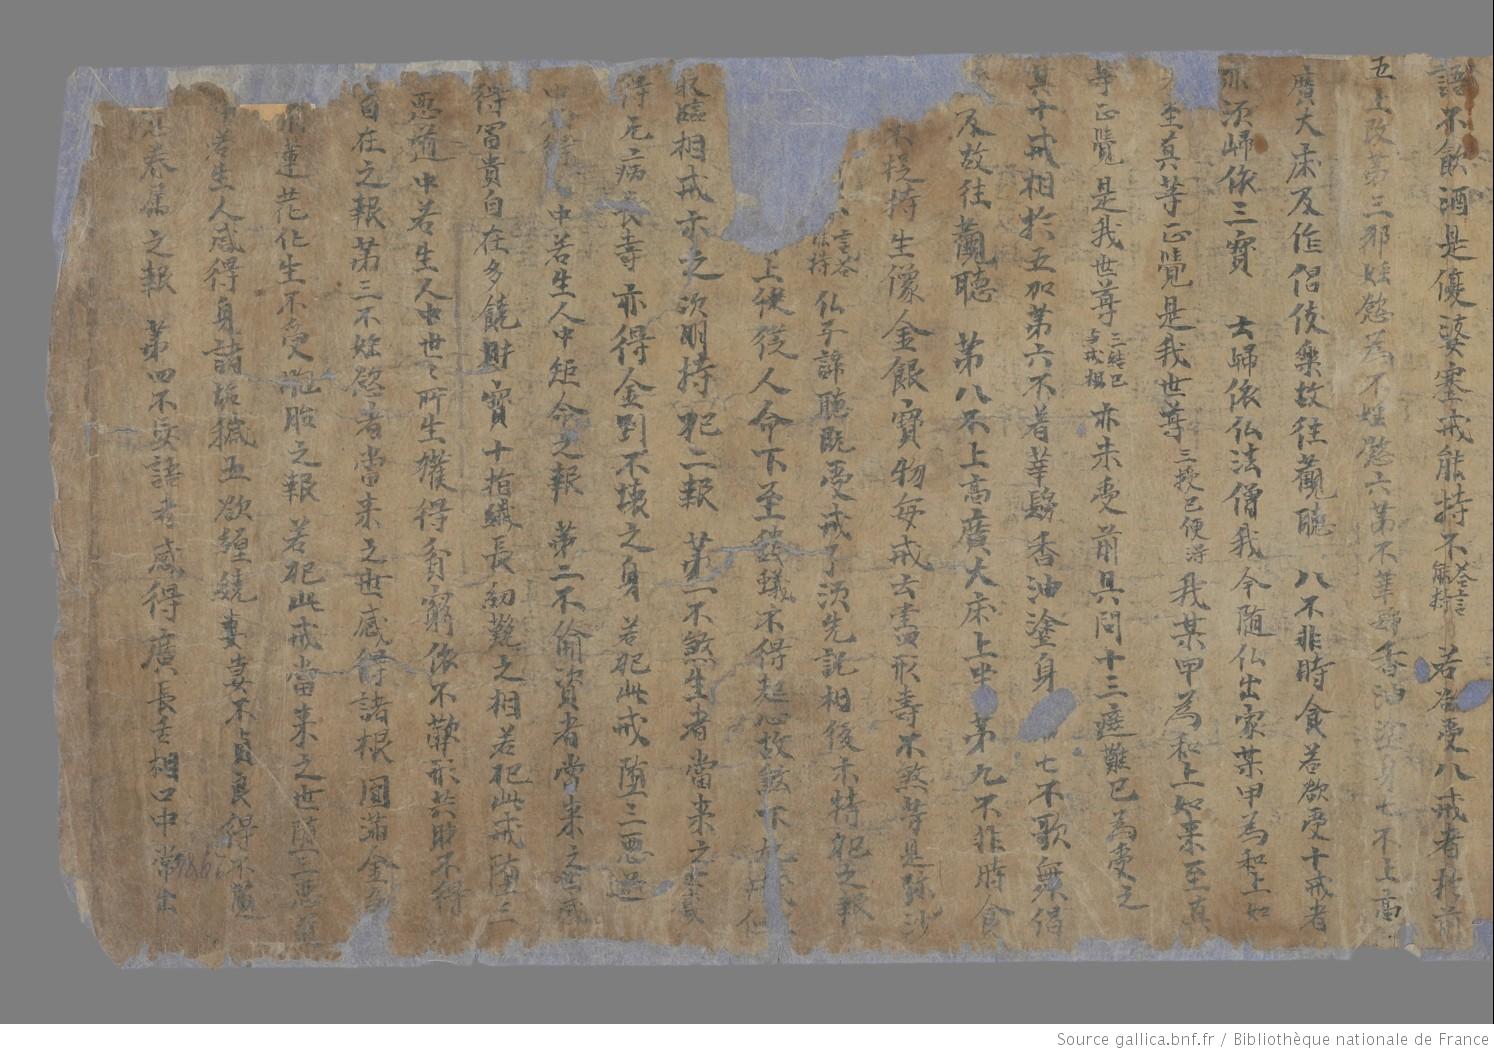 語不飲酒是優婆塞戒能持不答言能持 若欲受八戒者於前
五上改第三邪婬慾為不婬慾六第不華鬘香油塗身七不上高
廣大床及作倡伎樂故往觀聽 八不非時食若欲受十戒者
亦須歸依三寶 云歸依仏法僧我今随仏出家某甲為和上如
至真等正覺是我世尊三授已便得我某甲為和上如来至真
等正覺是我世尊三結已与戒相亦未受前具問十三遮難已為受之
其十戒相於五加第六不着華鬘香油塗身 七不歌舞倡
及故往觀聽 第八不上高廣大床上坐 第九不非時食
捉持生像金銀寶物每戒云盡形壽不煞等是弥沙
言答 持 仏子諦聽既受戒了須先記相後示持犯之報
上使從人命下至蟻不得起心故煞下
臨相戒示之次明持犯二報 第一不煞生者當来之世
得无病長壽亦得金剛不壊之身 若犯此戒墮三悪道
中 中若生人中短命之報 第二不偷盗者當来之世
得冨貴自在多饒財寶十指纖長網鞔之相若犯此戒墮三
悪道中若生人中世々所生獲得貧窮依不蔽形於財不得
自在之報第三不婬慾者當来之世感得諸根圓滿金色
蓮花化生不受胞胎之報 若犯此戒當来之世墮三悪道
若生人感得身諸垢穢五欲纏繞妻妾不貞良得不
眷属之報 第四不妄語者感得廣長舌相口中常出
Source gallica.bnf.fr / Bibliothèque nationale de France